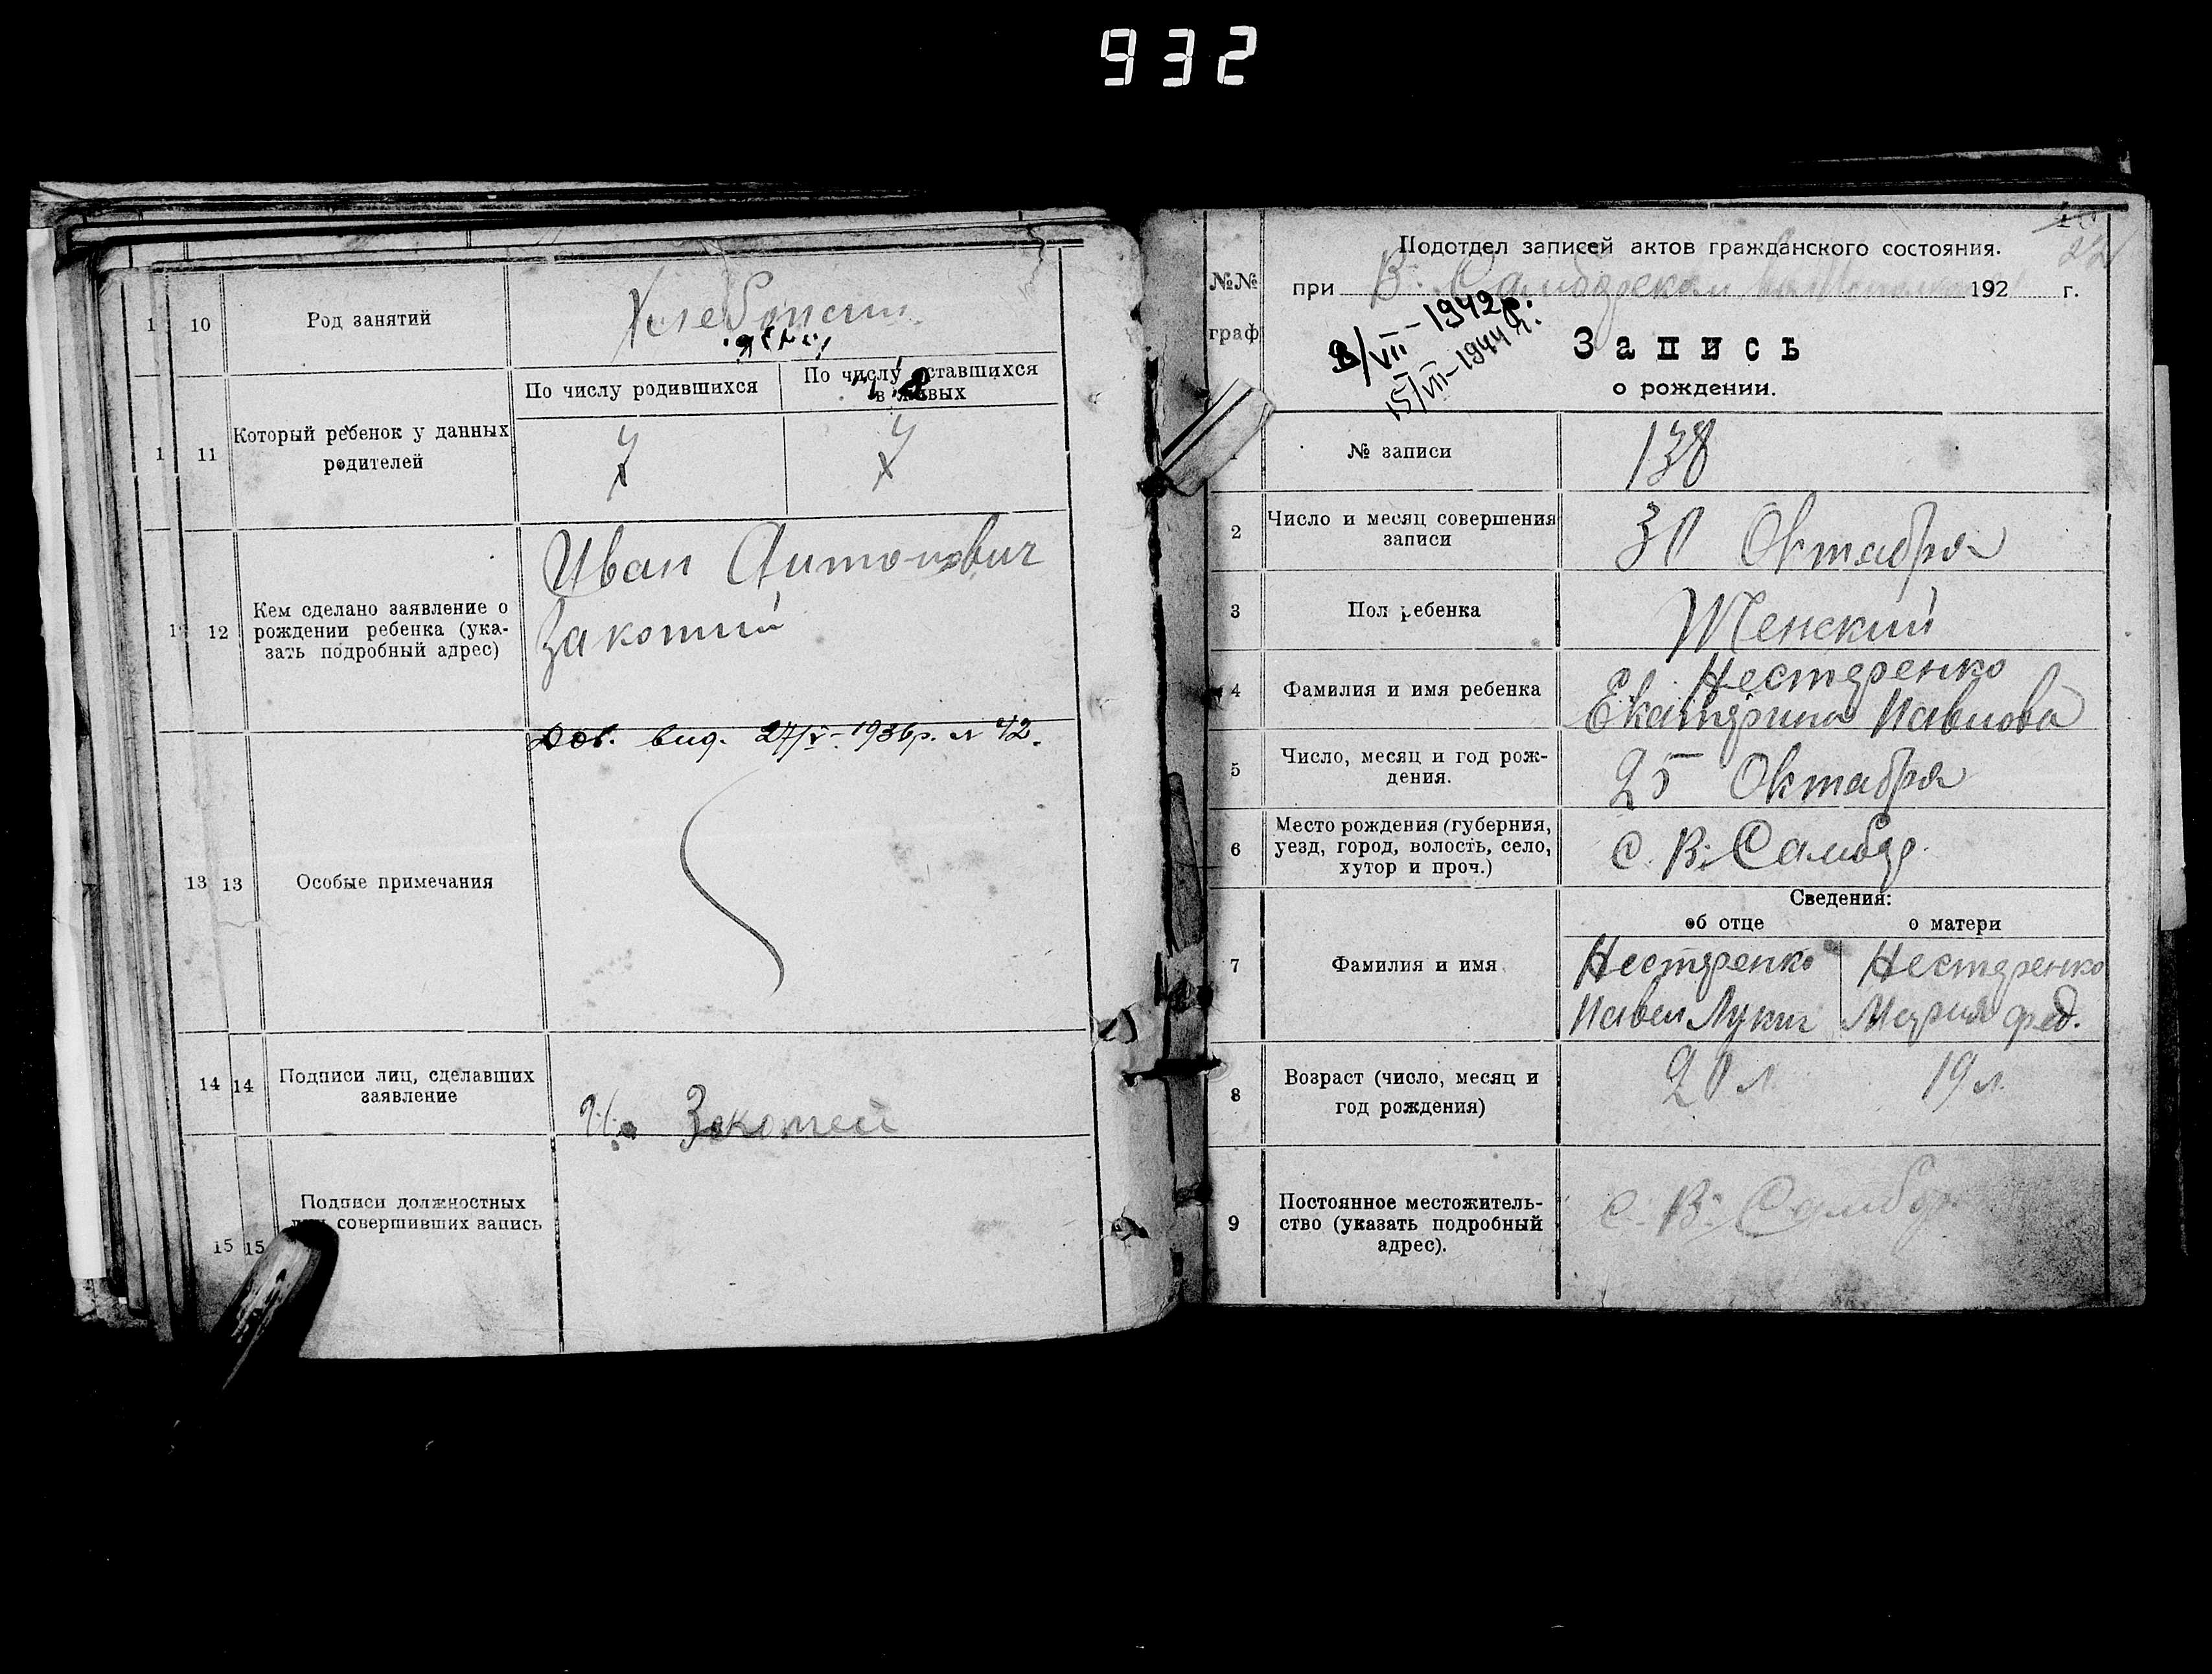 932
1 10 Род занятий Хлебопаш.
По числу родившихся
По числу оставшихся
в живых
1 11 Который ребенок у данных
родителей
Иван Антонович
12 Кем сделано заявление о
рождении ребенка (ука-
зать подробный адрес)
Закотий
вид. 27/V-1936р. № 42.
13 13 Особые примечания
14 14 Подписи лиц, сделавших
заявление
15 15 Подписи должностных
лиц, совершивших запись
22
Подотдел записей актов гражданского состояния.
№№
граф
при В. Самборском 192 г.
/VII-1942р.
15/VII-1944р.
Запись
о рождении.
№ записи 138
2 Число и месяц совершения
записи
30 Октября
3 Пол ребенка Женский
4 Фамилия и имя ребенка
Нестеренко
Екатерина Павлова
5 Число, месяц и год рож-
дения.
25 Октября
6 Место рождения (губерния,
уезд, город, волость, село,
хутор и проч.)
с. В. Самбор
Сведения:
об отце о матери
7 Фамилия и имя
Нестеренко Нестеренко
Павел Лукич Мария Фед.
8 Возраст (число, месяц и
год рождения)
20 л. 19 л.
9 Постоянное местожитель-
ство (указать подробный
адрес).
с. В. Самбор